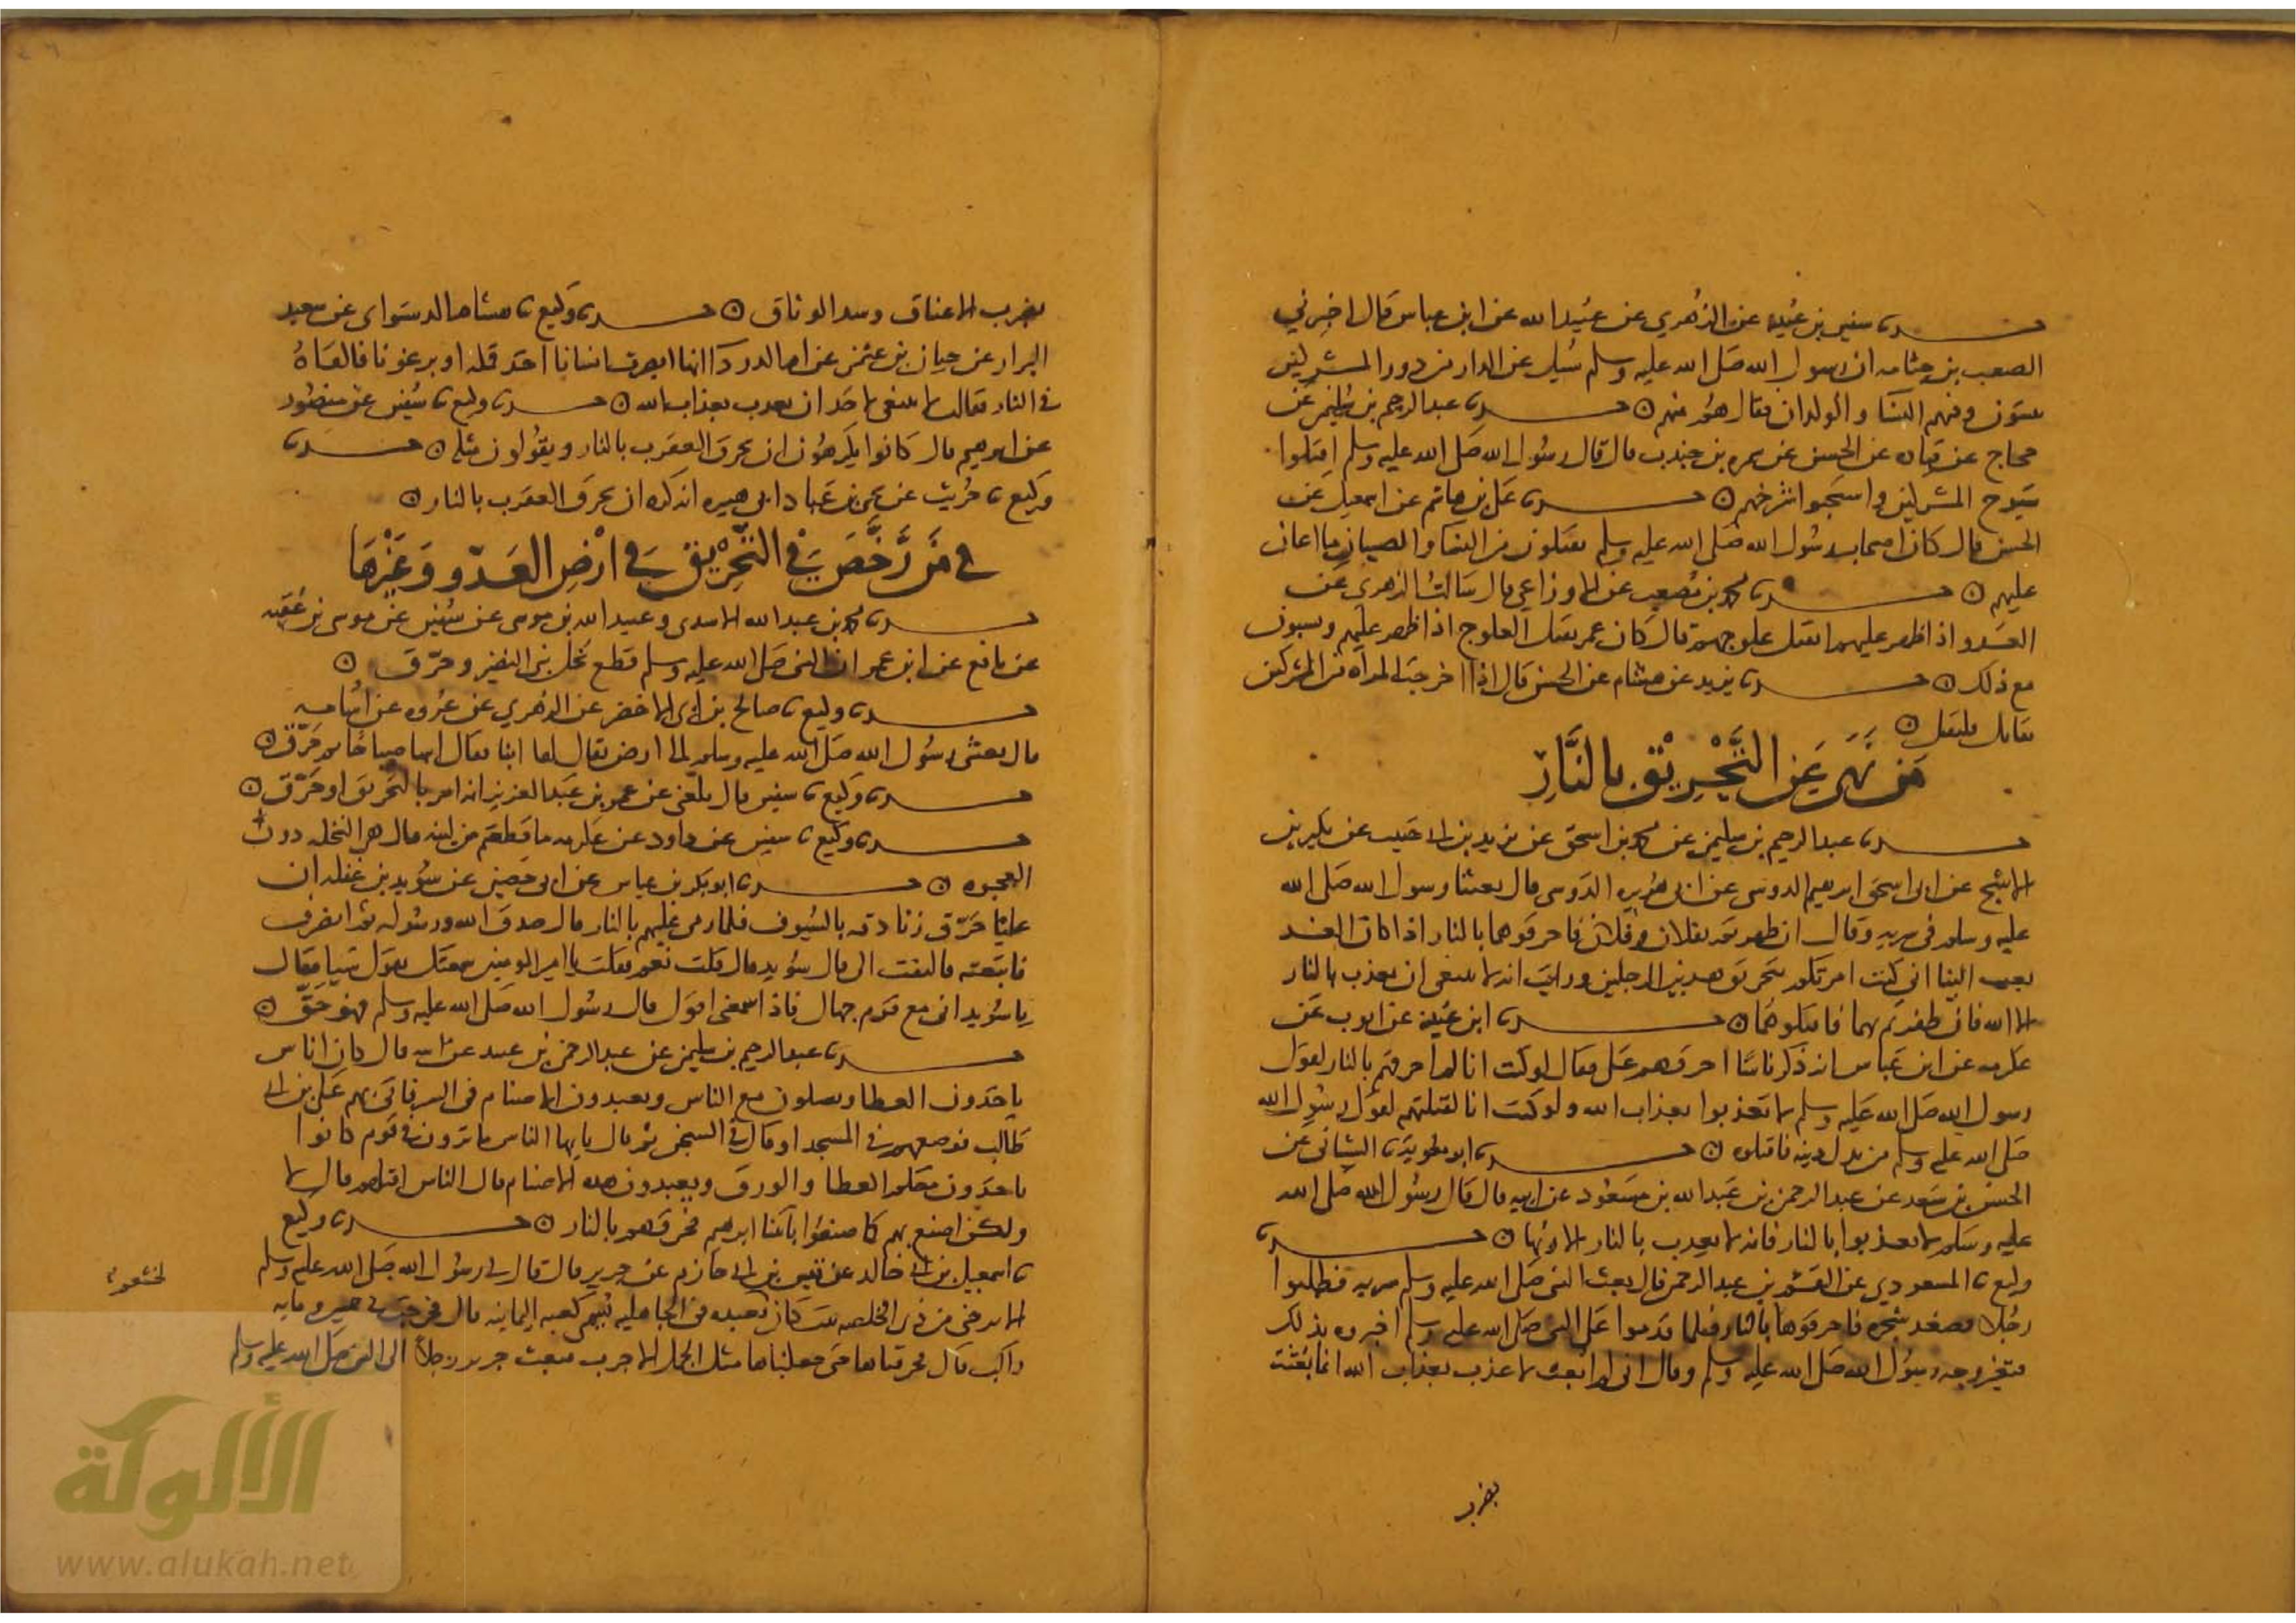 حدثنا سفين بن عيينه عن الزهري عن عبيد الله عن ابن عباس قال اخبرني
الصعب بن جثامه ان رسول الله صلى الله عليه وسلم سُيل عن الدار من دور المشركين
يبيتون وفيهم النسا والولدان فقال هُم منهم ۞ حدثنا عبد الرحيم بن سليمن عن
حجاج عن قتاده عن الحسن عن سمره بن جندب قال قال رسول الله صلى الله عليه وسلم اقتلوا
شيوخ المشركين واستحيوا شرخهم ۞ حدثنا على بن هاشم عن اسمعيل عن
الحسن قال كان اصحاب رسول الله صلى الله عليه وسلم يقتلون من النسا والصبيان ما اعان
عليهم ۞ حدثنا محمد بن مُصعب عن الاوزاعي قال سَالتُ الزهري عن
العدو اذا ظهر عليهم ايقتل علوجهم قال كان عمر يقتل العلوج اذا ظهر عليهم ويسبون
مع ذلك ۞ حدثنا يزيد عن هشام عن الحسن قال اذا خرجت المراه من المشركين
تقاتل فلتقتل ۞
مَن نَهَى عَنِ التَّحْرِيْقِ بِالنَّارِ
حدثنا عبد الرحيم بن سليمن عن محمد بن اسحق عن يزيد بن ابي حبيب عن بكير بن
الاشج عن ابي اسحق ابرهيم الدوسى عن ابي هُريره الدَوسى قال بعثنا رسول الله صلى الله
عليه وسلم فى سريه وقال ان ظفرتم بفلان وفلان فاحرقوهما بالنار اذا كان الغد
بعث الينا انى كنت امرتكم بتحريق هذين الرجلين ورايت انه لا ينبغى ان يعذب بالنار
الا الله فان ظفرتم بهما فاقتلوهُما ۞ حدثنا ابن عُيينه عن ايوب عن
عكرمه عن ابن عباس انه ذكر ناسًا احرقهم على فقال لو كنت انا لم احرقهم بالنار لقول
رسول الله صلى الله عليه وسلم لا تعذبوا بعذاب الله ولو كنت انا لقتلتهم لقول رسُول الله
صلى الله عليه وسلم من بدل دينه فاقتلوه ۞ حدثنا ابو معويه ثنا الشيبانى عن
الحسن بن سَعد عن عبد الرحمن بن عَبد الله بن مسعُود عن ابيه قال قال رسُول الله صلى الله
عليه وسلم لا تعذبوا بالنار فانه لا يعذب بالنار الا ربُها ۞ حدثنا
وكيع ثنا المسعودي عن القسم بن عبد الرحمن قال بعث النبى صلى الله عليه وسلم سريه فطلبوا
رجُلا فصعد شجره فاحرقوها بالنار فلما قدموا على النبى صلى الله عليه وسلم اخبروه بذلك
فتغير وجه رسُول الله صلى الله عليه وسلم وقال انى لم ابعث لاعذب بعذاب الله انما بُعثت
بضرب
بضرب الاعناق وشد الوثاق ۞ حدثنا وكيع ثنا هشام الدستواى عن سعيد
البزار عن حيان بن عثمن عن ام الدردآ انها ابصرت انسانا اخذ قمله او برغوثا فالقاهُ
فى النار فقالت لا ينبغى لاحد ان يعذب بعذاب الله ۞ حدثنا وكيع ثنا سُفين عن منصُور
عن ابرهيم قال كانوا يكرهُون ان يحرق العقرب بالنار ويقولون مثله ۞ حدثنا
وكيع ثنا حُريث عن يحيى بن عَباد ابى هبيره انه كره ان يحرق العقرب بالنار ۞
فى مَن رَخَّصَ فِي التَّحْرِيْقِ فِي ارْضِ العَدوِّ وَغَيْرِهَا
حدثنا محمد بن عبد الله الاسدى وعبيد الله بن موسى عن سُفين عن موسى بن عُقبه
عن نافع عن ابن عمر ان النبى صلى الله عليه وسلم قطع نخل بنى النضير وحرّق ۞
حدثنا وكيع ثنا صالح بن ابى الاخضر عن الزهري عن عُروه عن اُسَامه
قال بعثنى رسُول الله صلى الله عليه وسلم الى ارض يقال لها ابنا فقال ايتها صباحًا ثم حَرّق ۞
حدثنا وكيع ثنا سفين قال بلغنى عن عمر بن عَبد العزيز انه امر بالتحريق او حَرّق ۞
حدثنا وكيع ثنا سفين عن داود عن عكرمه ما قطعتم من لينه قال هى النخله دون
العجوه ۞ حدثنا ابو بكر بن عياش عن ابى حصين عن سُويد بن غفله ان
عليًا حَرّق زنادقه بالسُيوف فلما رمى عليهم بالنار قال صدق الله ورسُوله ثم انصرف
فاتبعته فالتفت الى قال سُويد قال قلت نعم فقلت يا امير المومنين سمعتك تقول شيا فقال
يا سُويد انى مع قوم جهال فاذا سمعتنى اقول قال رسُول الله صلى الله عليه وسلم فهو حَقّ ۞
حدثنا عبد الرحيم بن سليمن عن عبد الرحمن بن عبيد عن ابيه قال كان اناس
ياخذون العطا ويصلون مع الناس ويعبدون الاصنام فى السر فاتى بهم على بن ابى
طالب فوضعهم فى المسجد او قال فى السجن ثم قال يايها الناس ما ترون فى قوم كانوا
ياخذون معكم العطا والورق ويعبدون هذه الاصنام قال الناس اقتلهم قال لا
ولكن اصنع بهم كما صنعُوا بابينا ابرهيم فحرقهم بالنار ۞ حدثنا وكيع
ثنا اسمعيل بن ابى خالد عن قيس بن ابى حازم عن جرير قال قال لى رسُول الله صلى الله عليه وسلم
الا تريحنى من ذى الخلصه بيت كان لخثعم تعبده فى الجاهليه تُسَمى كعبه اليمانيه قال فخرجت فى خمسين ومايه
راكب قال فحرقناها حتى جعلناها مثل الجمل الاجرب فبعث جرير رجلاً الى النبى صلى الله عليه وسلم
الألوكة
www.alukah.net